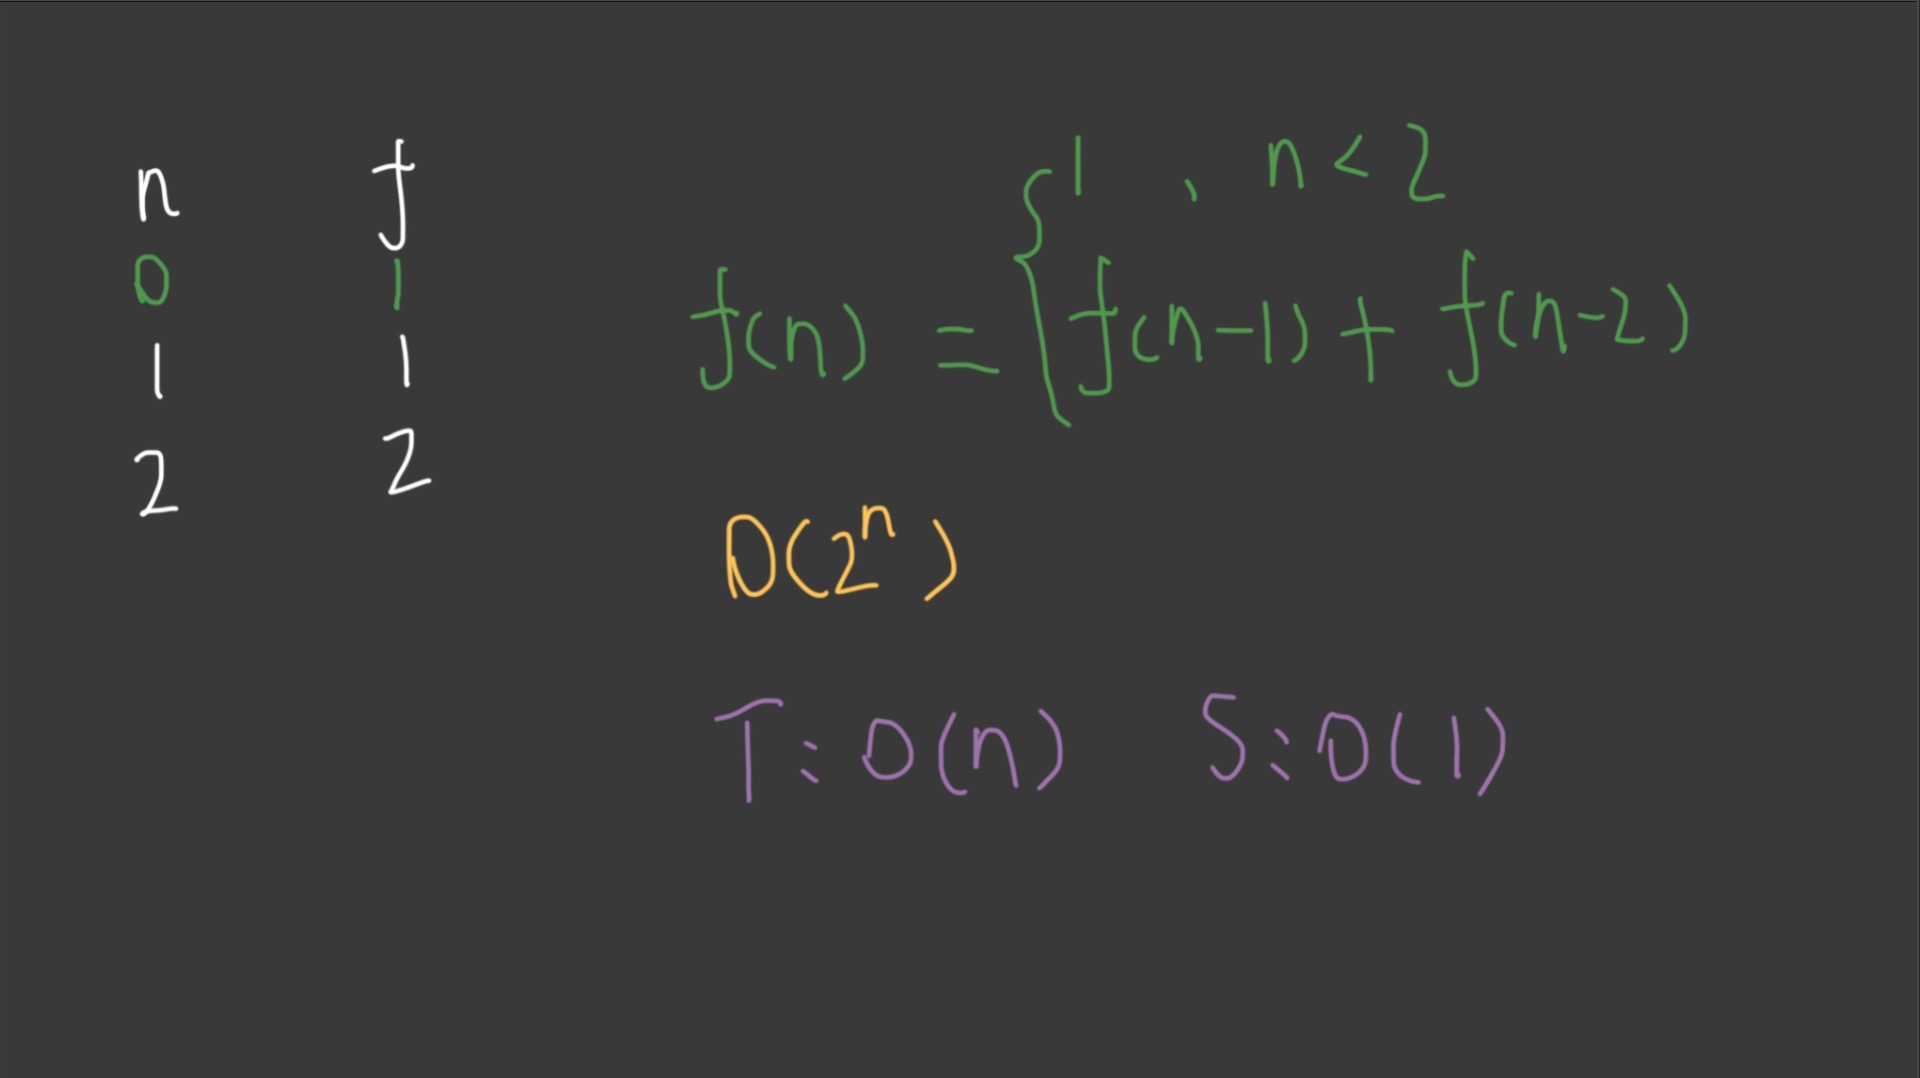 n f
0 1
1 1
2 2
f(n) = { 1 , n < 2
f(n-1) + f(n-2)
O(2^n)
T: O(n) S: O(1)